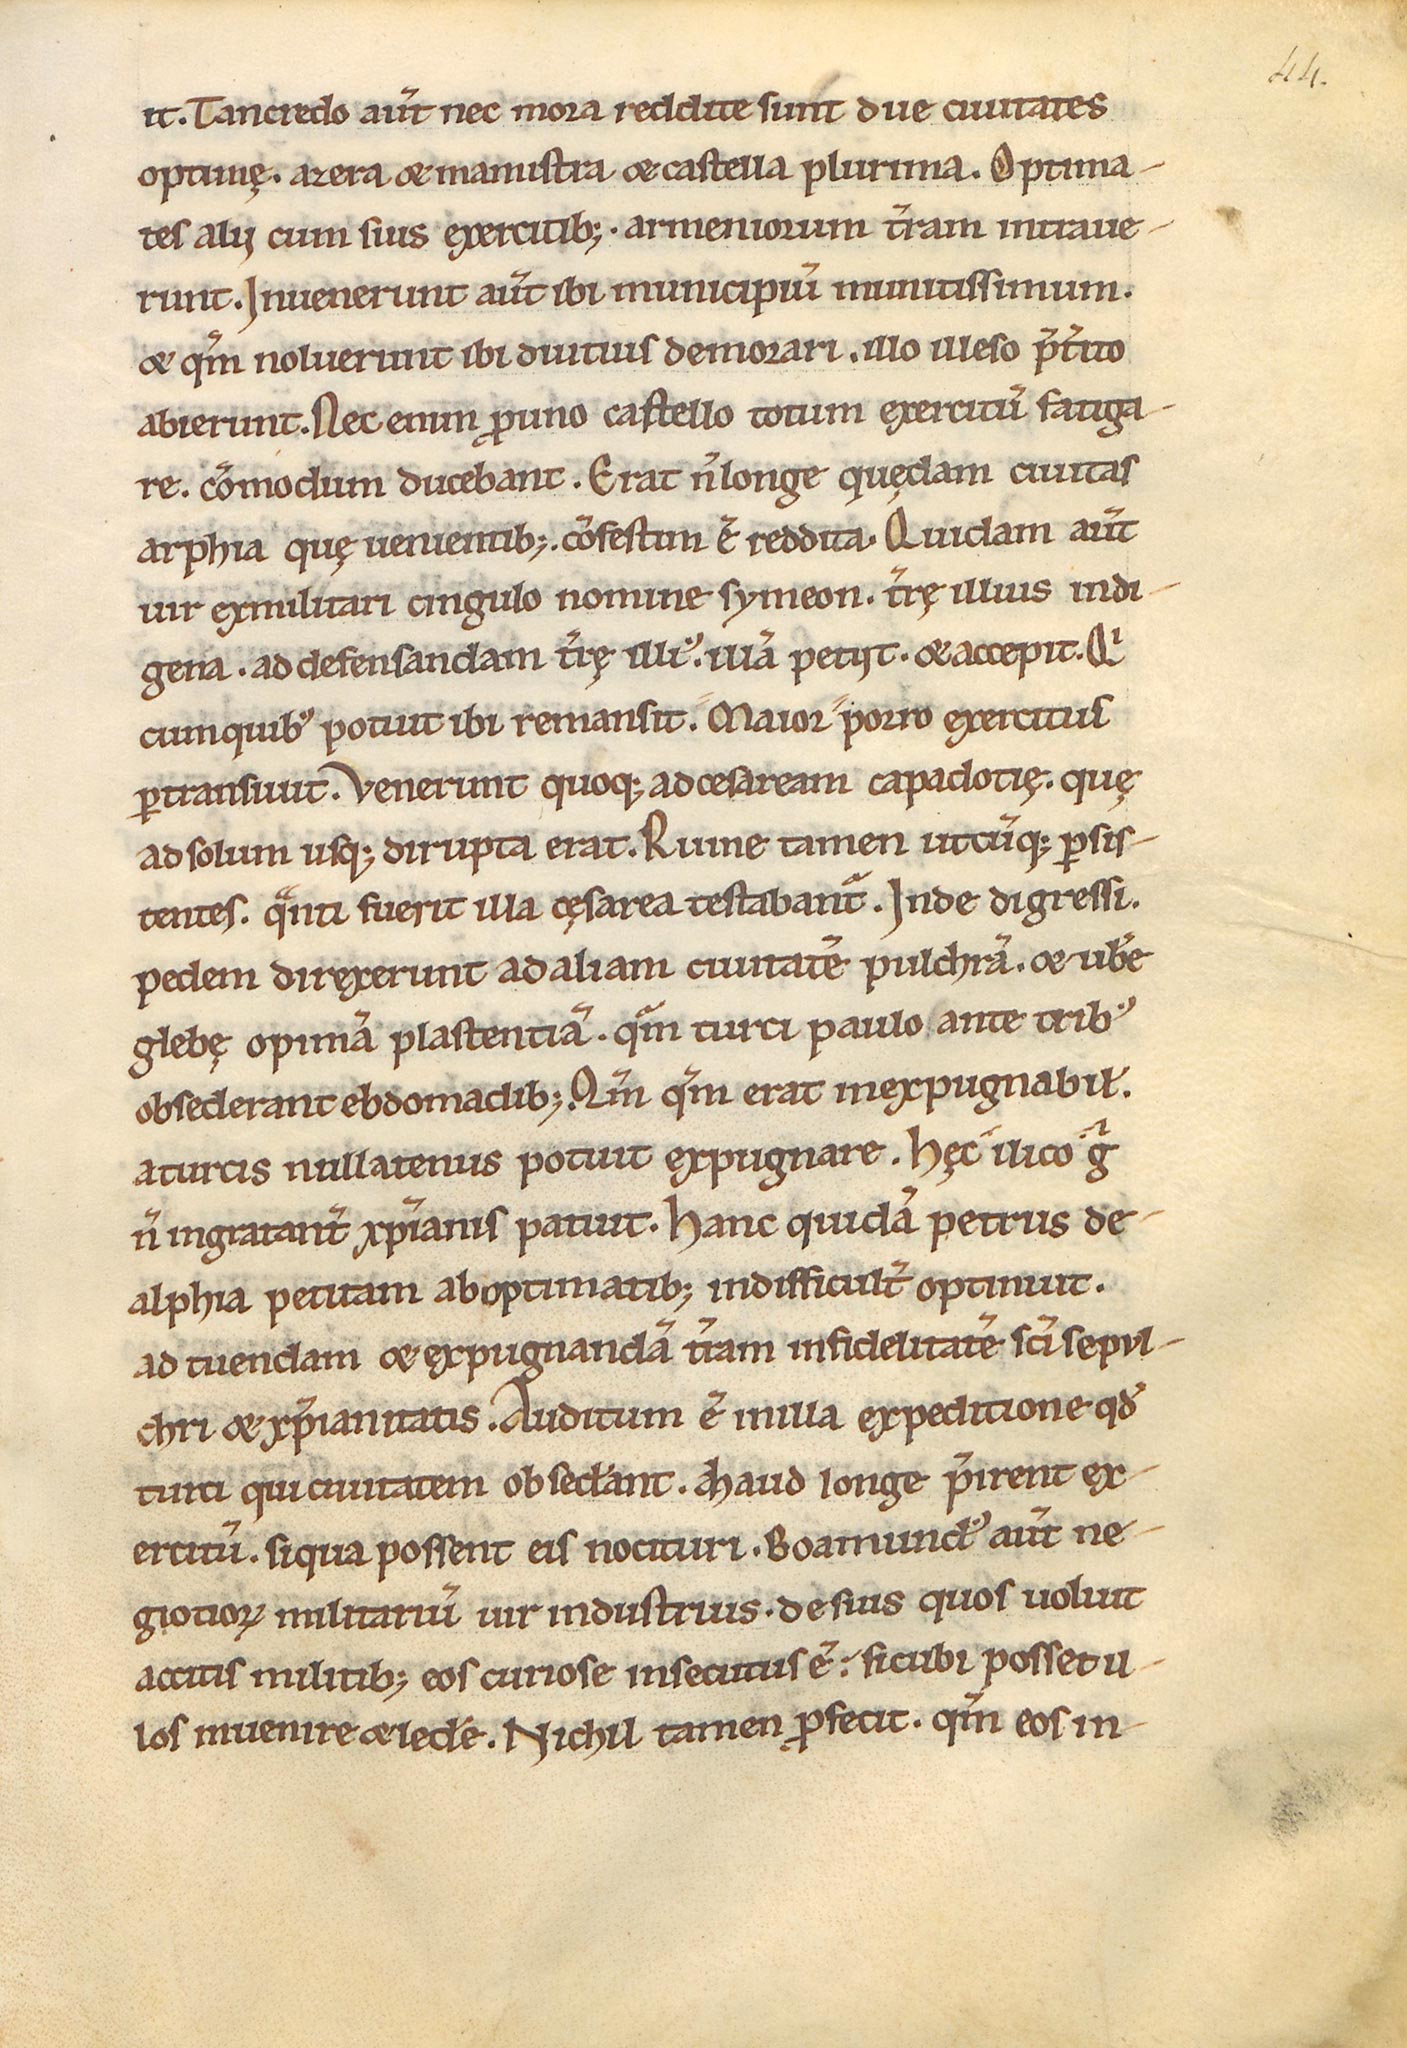 44.
it. Tancredo aut̃ nec mora reddite sunt due ciuitates
optimę. azera & manustra & castella plurima. Optima-
tes alij cum suis exercitib;. armeniorum t̃ram intraue-
runt. Inuenerunt aut̃ ibi municipiũ munitissimum.
& qm̃ noluerunt ibi diutius demorari. illo illeso p̃t̃ito
abierunt. Nec enim ꝓ uno castello totum exercitũ fatiga-
re. cõmodum ducebant. Erat ñ longe quędam ciuitas
arphia quę uenientib;. cõfestim ẽ reddita. Quidam aut̃
uir ex militari cingulo nomine symeon. t̃rę illius indi-
gena. ad defensandam t̃rę illi᾽. illã petijt. & accepit. Qⁱ
cum quib᾽ potuit ibi remansit. Maior porro exercitus
ꝑtransiuit. Venerunt quoq; ad cesaream capadotię. quę
ad solum usq; dirupta erat. Ruine tamen utcũq; ꝑsis-
tentes. qᵃnti fuerit illa cęsarea testabant᷑. Inde digressi.
pedem direxerunt ad aliam ciuitatẽ pulchrã. & ub̃e
glebę opimã plastentiã. qᵃm turci paulo ante trib᾽
obsederant ebdomadib;. Qm̃ qm̃ erat inexpugnabil̃.
a turcis nullatenus potuit expugnare. Hęc illico gⁱ
ñ ingratant̃ xp̃ianis patuit. Hanc quidã petrus de-
alphia petitam ab optimatib; indifficult̃ optinuit.
ad tuendam & expugnandã t̃ram in fidelitatẽ sc̃i sepul-
chri & xp̃ianitatis. Auditum ẽ in illa expeditione qđ
turci qui ciuitatem obsed̃ant. ahaud longe p̃irent ex-
ercitũ. siqua possent eis nocituri. Boamund᾽ aut̃ ne-
giotioꝝ militariũ uir industrius. de suis quos uoluit
accitis militib; eos curiose insecutus ẽ. sicubi posset il-
los inuenire & led̃e. Nichil tamen ꝓfecit. qm̃ eos in-